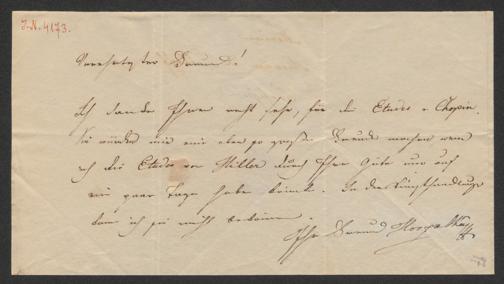 I.N. 4173.
Verehrtester Freund!
Ich danke Ihnen recht sehr, für die Etudes v Chopin.
Sie würden mir eine eben so große Freude machen wenn
ich die Etudes von Hiller durch Ihre Güte nur auf
ein paar Tage haben könnte. In der Kunsthandlung
kann ich sie nicht bekommen.
Ihr Freund